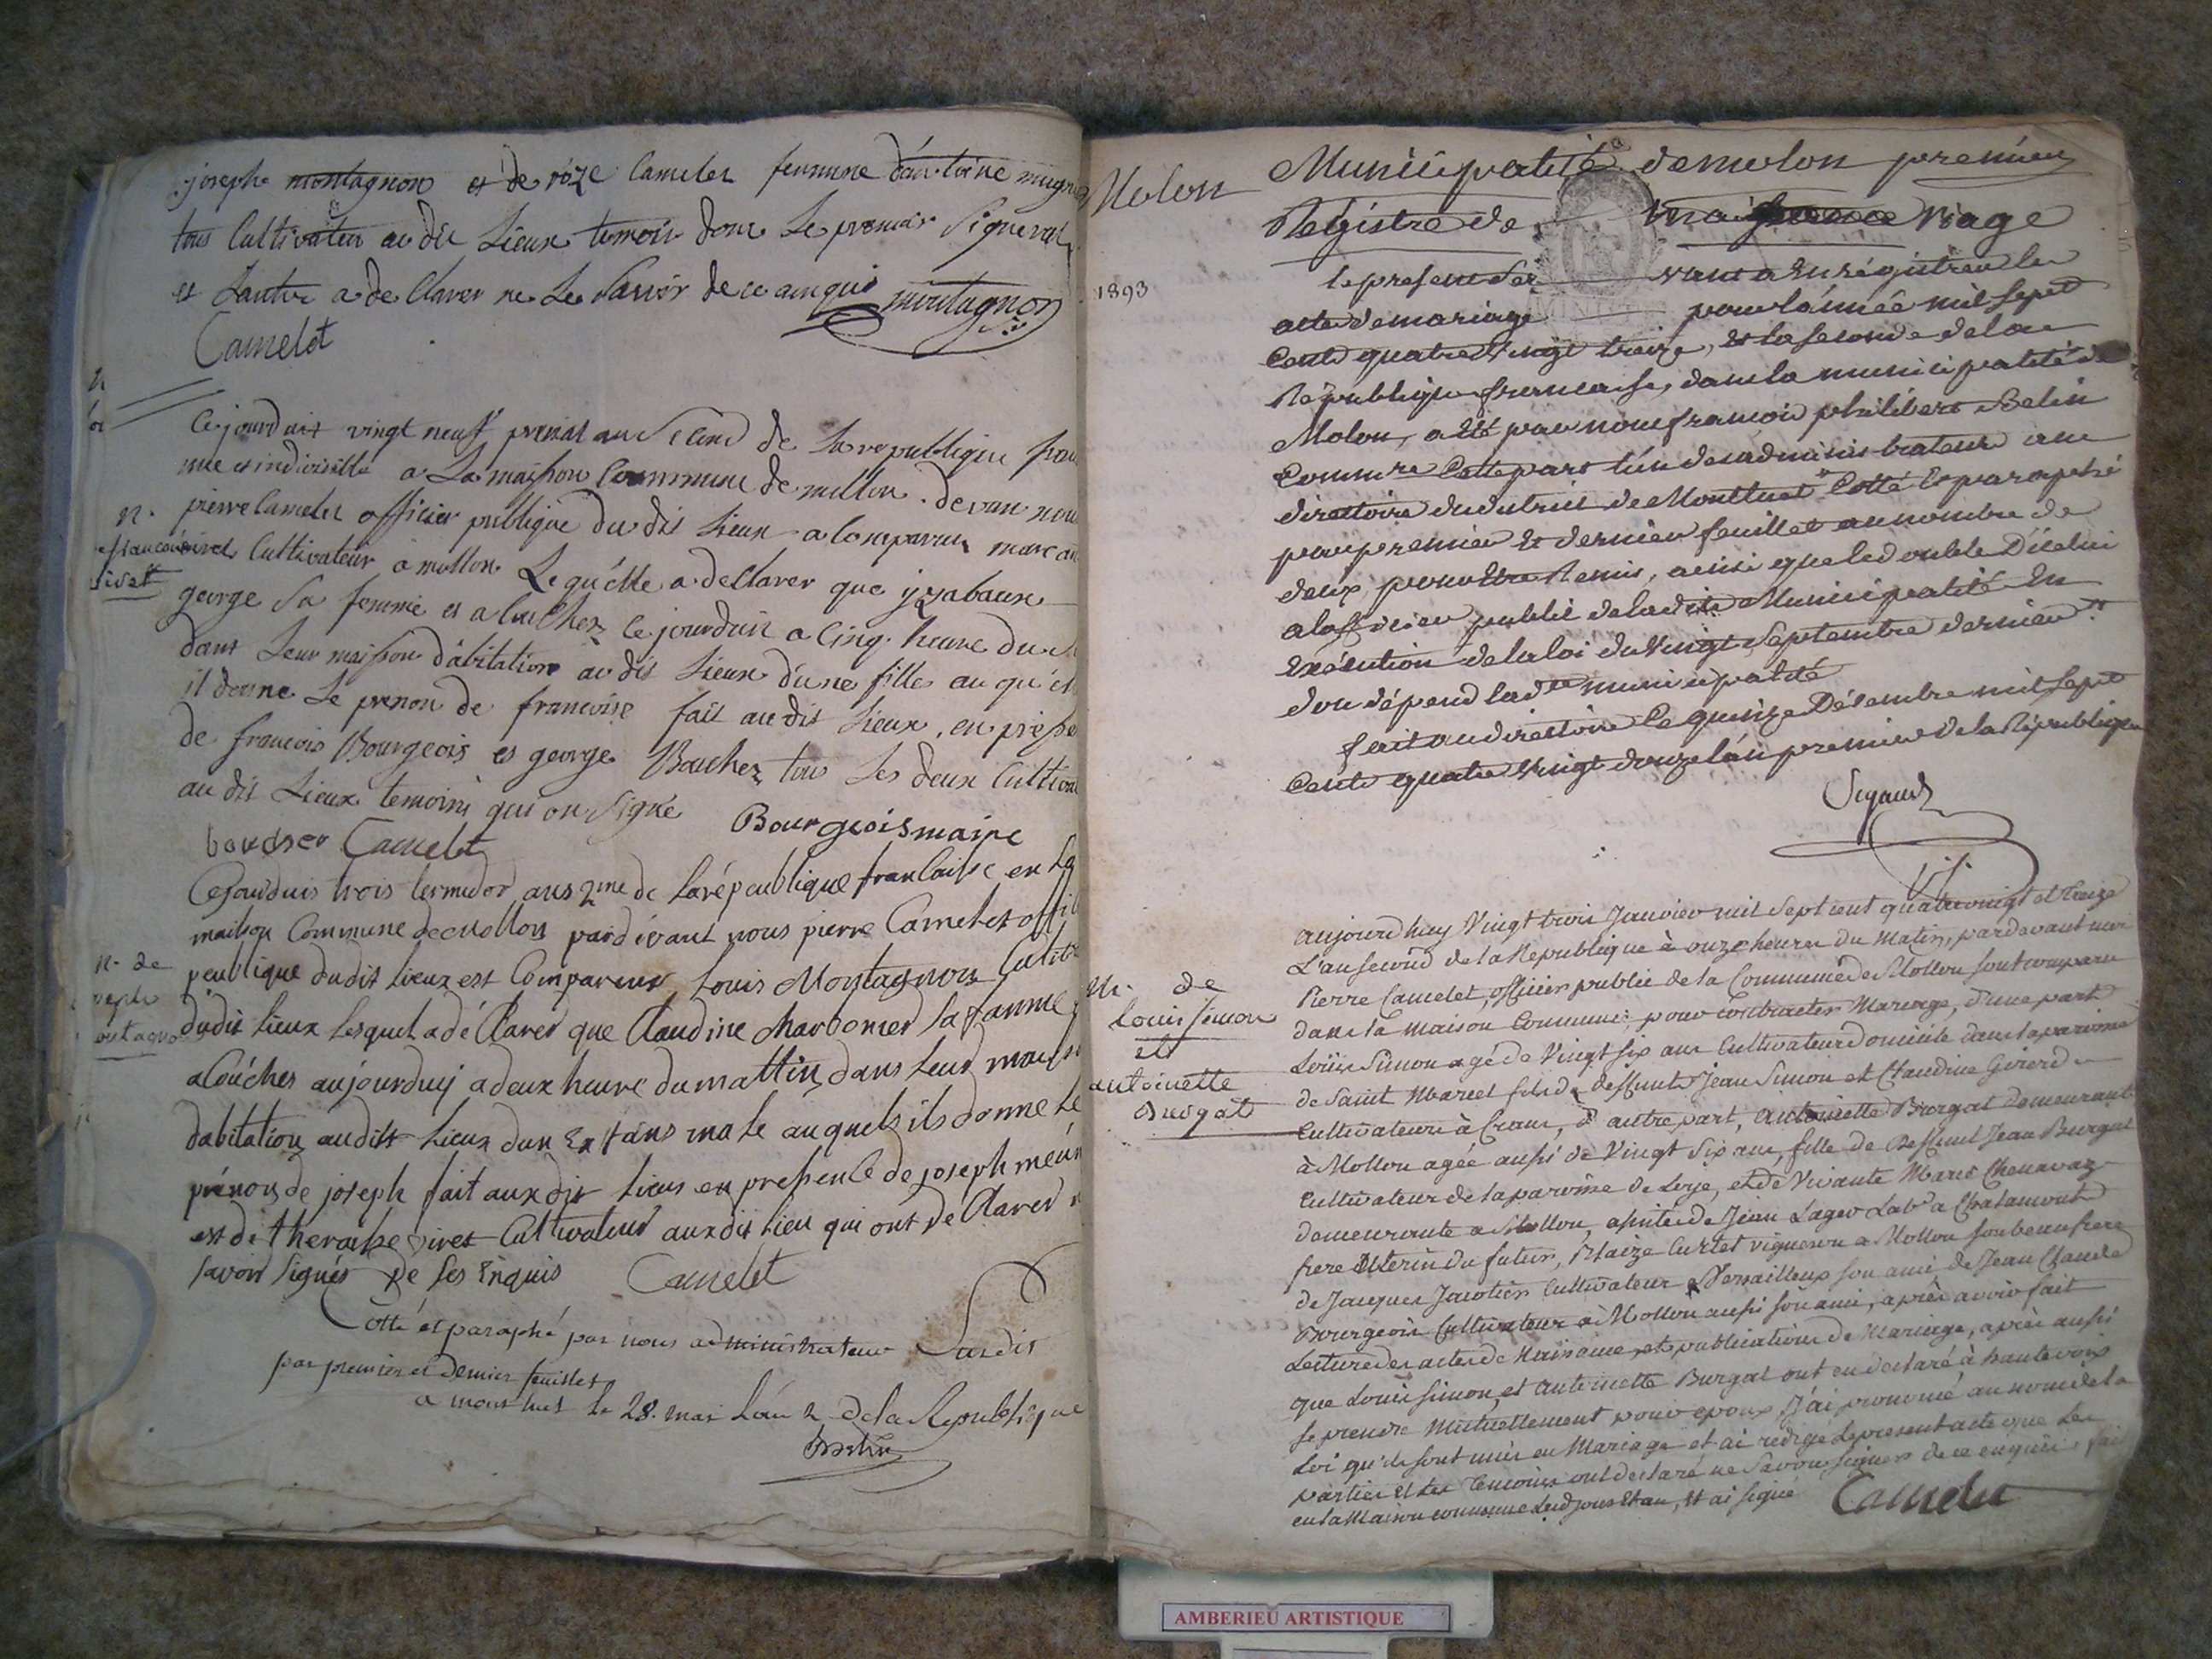 joseph montagnon et de roze Camelet femme d'antoine
tous Cultivateur au dit Lieux temoin donc Le premier Signeron
et Lautre a de Clarer ne Le Savoir de ce anquis montagnon
Camelet
Cejourduit vingt neuf prerial an Second de La republique
une et indivisille a La maison Commune de mollon devan nou
pierre Camelet officier publique du dit Lieux a Comparu marc
Cultivateur a mollon Le qu'elle a de Clarer que yzabaux
george Sa femme et a Cuchez Ce jourduit a Cinq heure du
dant Leur maison d'abitation au dit Lieux d'une fille au
il donne Le prenon de francoise fait au dit Lieux, en
de francois Bourgeois et george Bouchez tous Les deux
au dit Lieux temoins qui on Signe Bourgeois maire
Camelet
Cejourduis trois termidor ans 2me de La républiquqe franCaisse en La
maison Commune de Mollon pard evant nous pierre Camelet
peublique dudit Lieux est Comparuer Louis Montagnon
dudit Lieux Lesquel a dé Clarer que Claudine charbonier Sa famme
acoucher aujourduij a deux heure du mattin dans Leur
dabitation audit Lieux dun Enfans male auquels ils donne Le
prénon de joseph fait aux dit Lieux en pressence de joseph
est de therese Cultivateur aux dit Lieu qui ont de Clarer
savoir signer de Ses Enquis Camelet
Cotté et paraphé par nous administrateur Susdit
par premier et dernier feuillet
a montluel Le 28. mai L'an 2 de la Republique
Belin
N. de
Molon
1893
Municipalité de molon premier
Régistre de mariage
Le present servant a Enrégistrer les
actes de mariage pour l'année mil sept
Cents quatre Vingt treize, et la seconde de la
République francaise, dans la municipalité de
Molon, a été par nous francois philibert Belin
Commre. Cette part l'un des administrateurs au
directoire du district de Montluel Cotté et paraphé
par premier et dernier feuillet au nombre de
deux, pour être Remis, ainsi que le double D'icelui
a l'officier public de la dite Municipalité En
Exécution de la loi du Vingt Septembre dernier
dou dépend lade. municipalité
fait au directoire Ce quinze Décembre mil sept
Cents quatre Vingt douze l'an premier de la République
Segaud
aujourd'huy Vingt trois Janvier mil Sept cent quatrevingt et treize
L'an second de la Republique à onze heures du Matin, pardevant moi
Pierre Camelet, officier public de la Commune de Mollon sont comparu
dans la maison Commune, pour Contracter Mariage, d'une part
Louis Simon agé de Vingt six ans Cultivateur Domicilié dans la paroisse
de Saint Marcel fils de deffunts Jean Simon et Claudine Girerd
Cultivateurs à Crans, d'autre part, Antoinette Burgat demeurant
à Mollon agée aussi de Vingt Six ans, fille de deffunt Jean Burgat
Cultivateur de la paroisse de Loye, et de Vivante Marie Chenavaz
demeurante a Mollon, assistés de Jean Lager Labr. a Chatamont
frere Utérin du futur, Blaize Curtet vigneron a Mollon son beaufrere
de Jacques Jacotier Cultivateur a Versailleux son ami de Jean Claude
Bourgeois Cultivateur à Mollon aussi son ami, après avoir fait
Lecture des actes de Naissance, et publications de Mariage, après aussi
que Louis Simon, et Antoinette Burgat ont eu declaré à haute voix
se prendre Mutuellement pour epoux J'ai prononcé au nom de la
Loi qu'ils sont unis en Mariage et ai redigé le present acte que les
parties et les temoins ont declaré ne Savoir signer de ce enquis, fait
en la Maison commune Led jour et an, Et ai signé Camelet
M. de
Louis Simon
et
antoinette
Burgat
AMBERIEU ARTISTIQUE